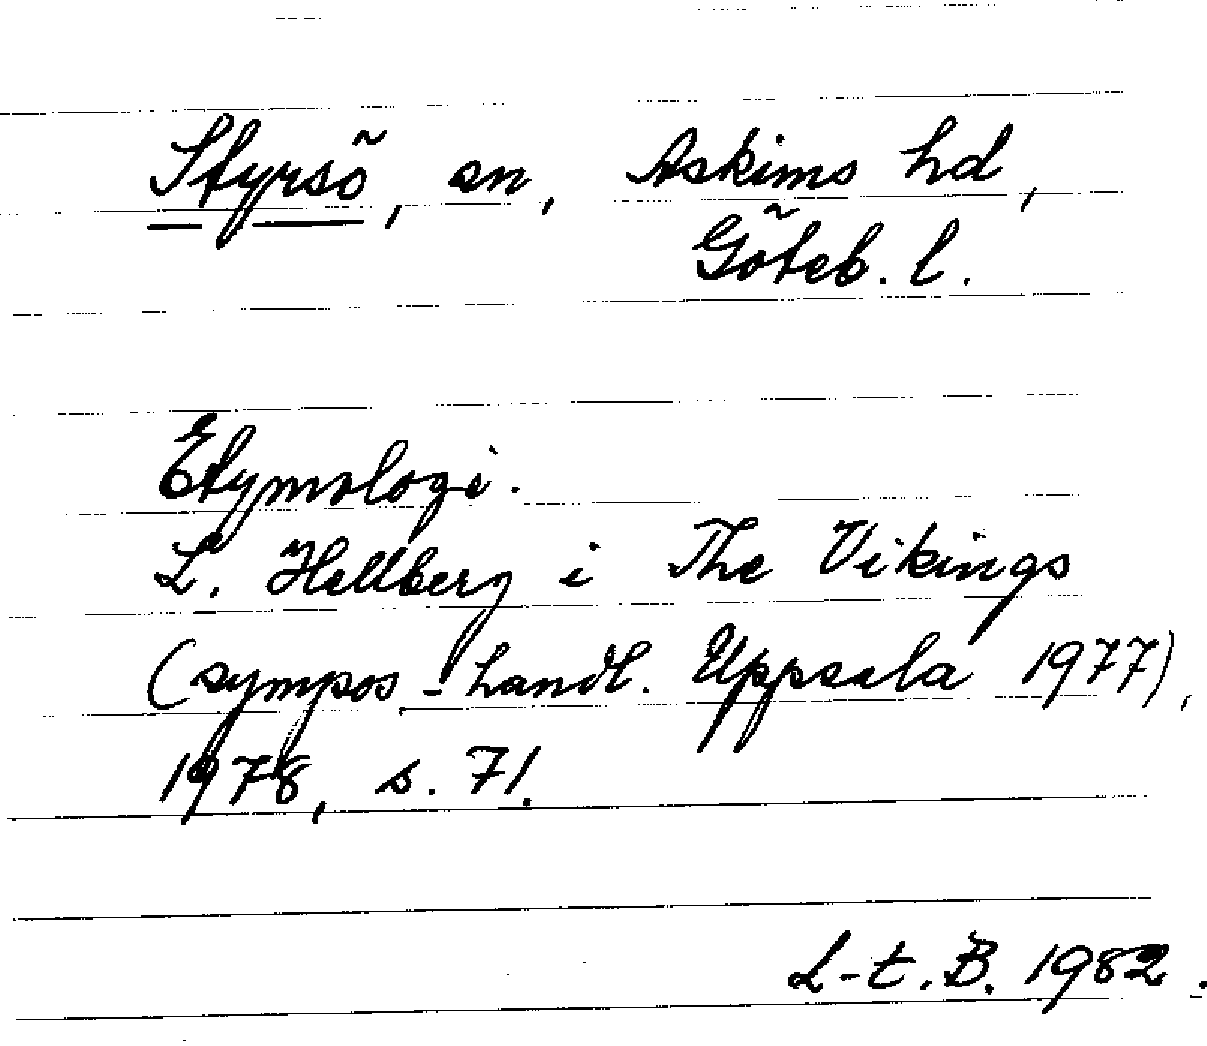 Styrsö, sn, Askims hd,
Göteb. l.
Etymologi.
L. Hellberg i The Vikings
(sympos.-handl. Uppsala 1977),
1978, s. 71.
L-t. B. 1982.